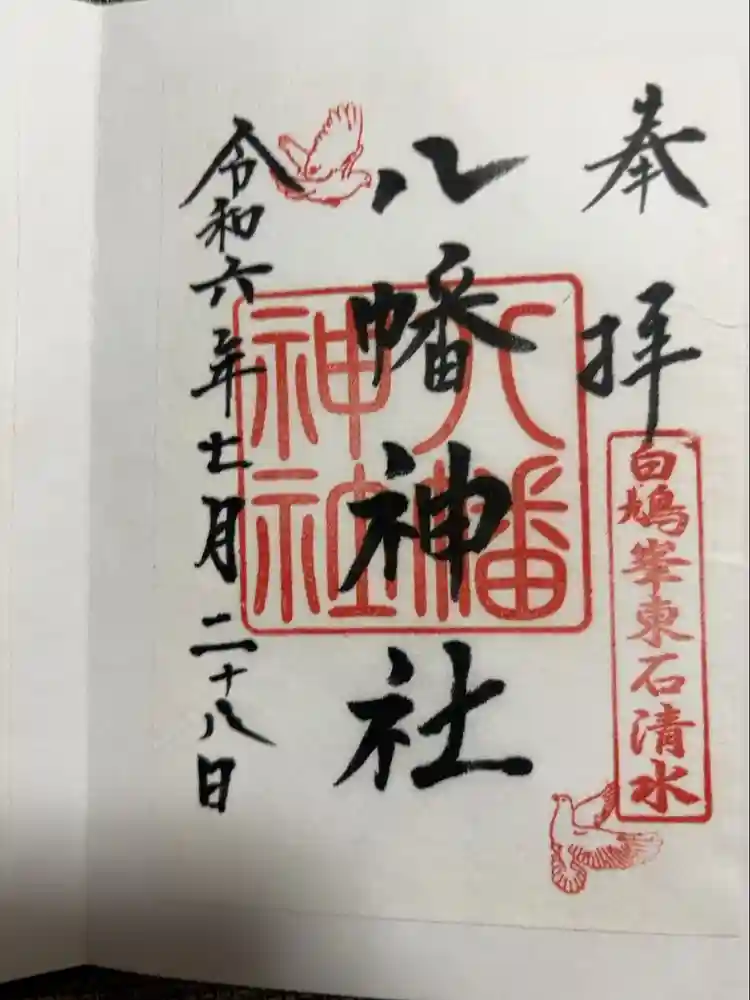 奉拝
白鳩峯東石清水
八幡神社
八幡神社
令和六年七月二十八日